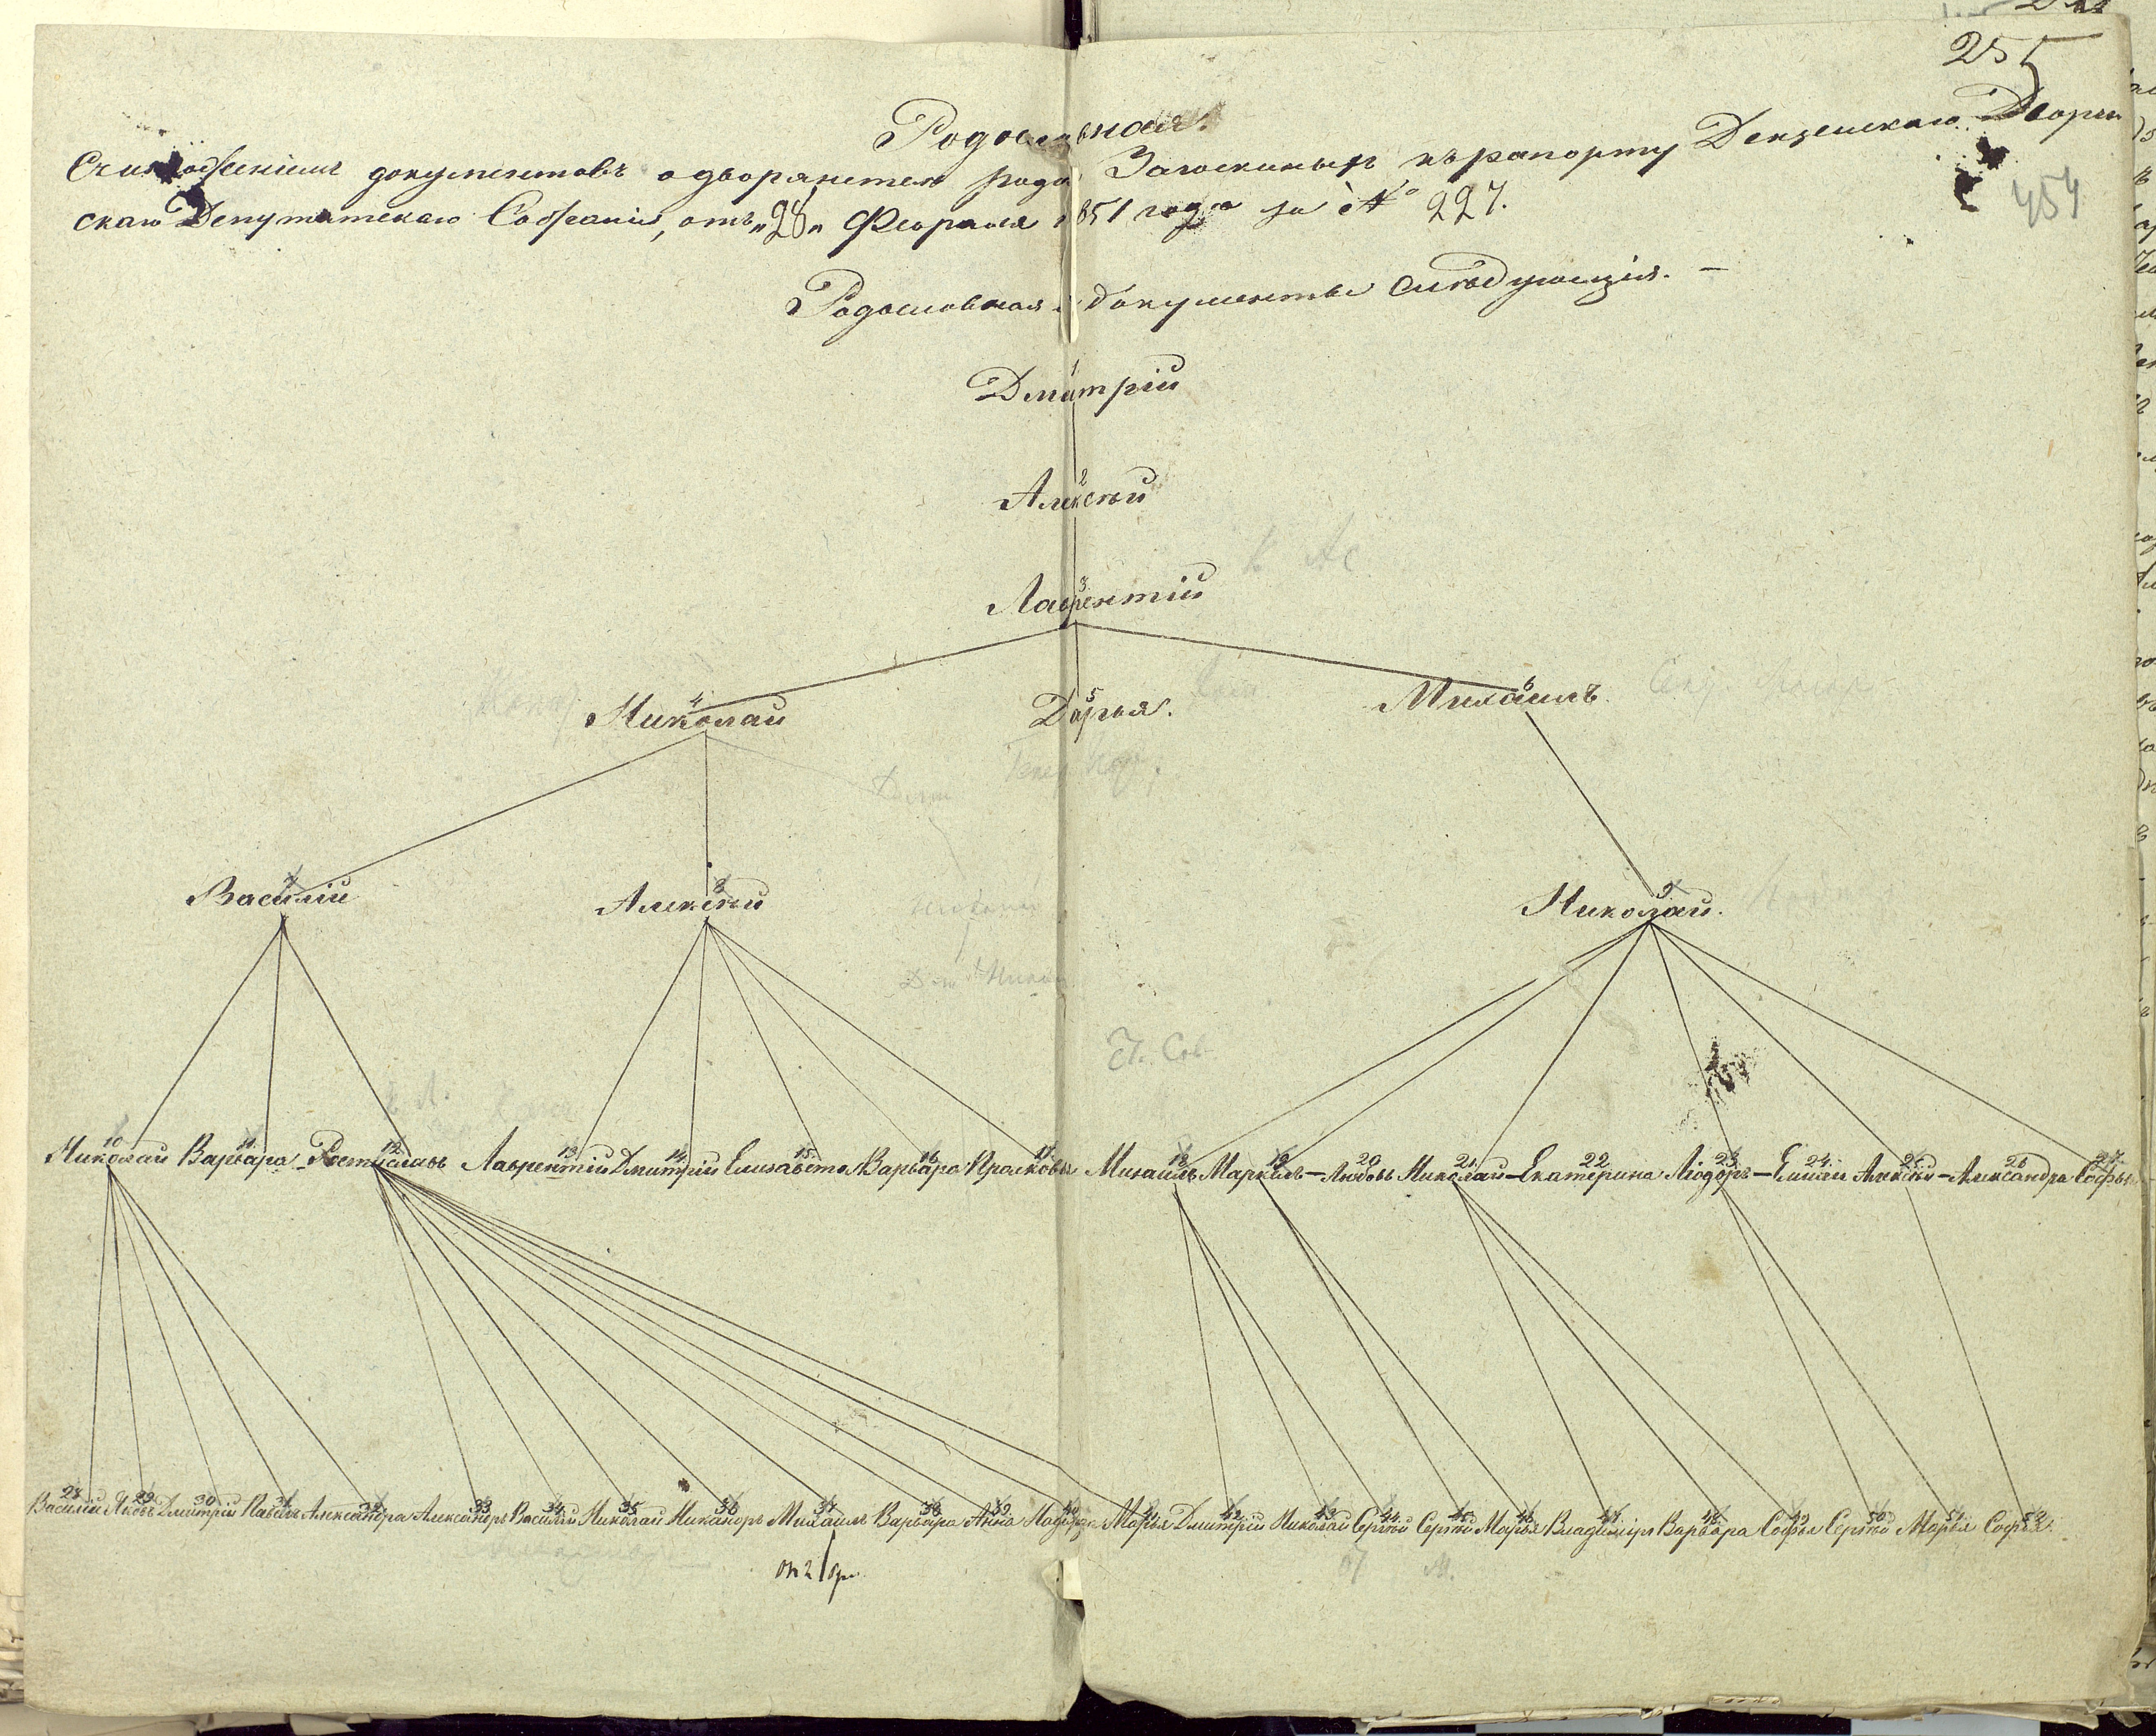 255
Родословная.
Съ приложеніемъ документовъ о дворянствѣ рода Загоскиныхъ къ рапорту Пензенскаго Дворян
скаго Депутатскаго Собранія, отъ „28„ Февраля 1851 года за № 227.
454
Родословная и документы слѣдующія. —
1
Дмитрій
2
Алексѣй
3
Лаврентій
4 5 6
Николай Дарья. Михаилъ.
7 8 9
Василій Алексѣй Николай.
Ст. Сов.
10 11 12 13 14 15 16 17 18 19 20 21 22 23 24 25 26 27
Николай Варвара Ростиславъ Лаврентій Дмитрій Елизавета Варвара Прасковья Михаилъ Маркелъ — Любовь Николай — Екатерина Ліодоръ — Алексѣй — Александра Софья
28 29 30 31 32 33 34 35 36 37 38 39 40 41 42 43 44 45 46 47 48 49 50 51 52
Василій Яковъ Дмитрій Павелъ Александра Александръ Василій Николай Никаноръ Михаилъ Варвара Анна Надежда Марья Дмитрій Николай Сергѣй Сергѣй Марья Владиміръ Варвара Софья Сергѣй Марья Софья.